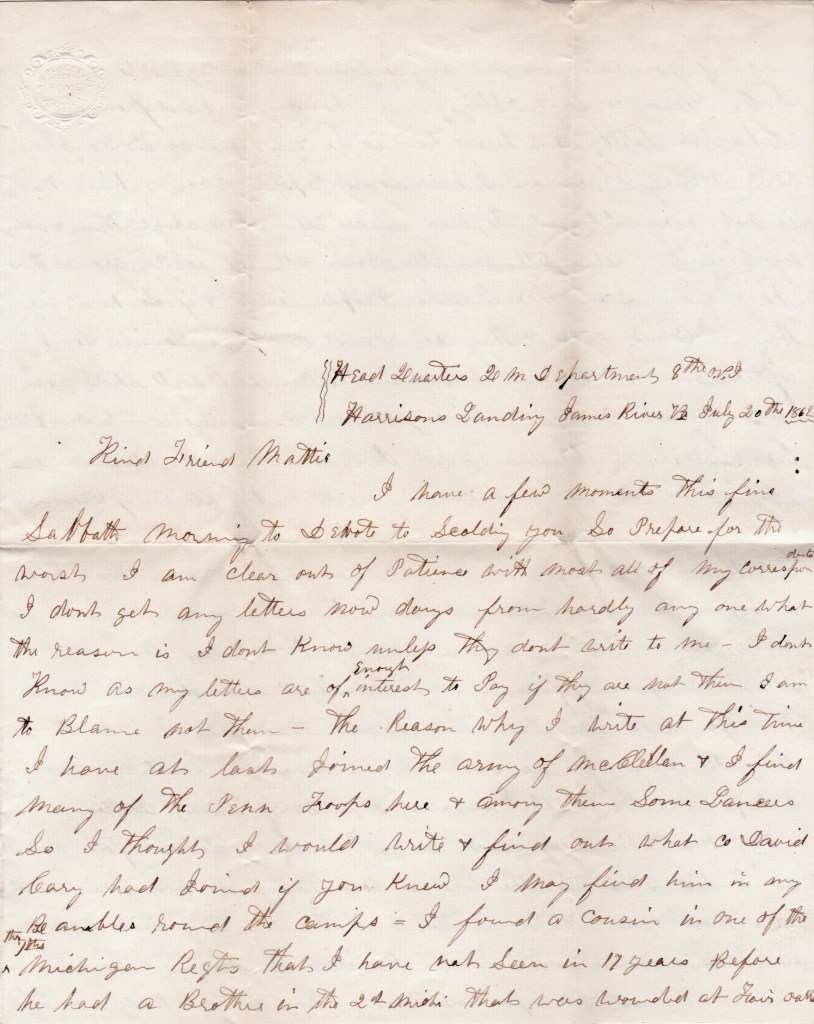 Head Quarters Q M Department 8th
Harrisons Landing James River Va July 20the 1862
Kind Friend Mattie
I have a few moments this fine
Sabbath morning to Devote to Scolding you So Prepare for the
worst I am clear out of Patience with most all of my correspondents
I dont get any letters now days from hardly any one what
the reason is I dont Know unless they dont write to me - I dont
Know as my letters are of Enough interest to Pay if they are not then I am
to Blame not them - the Reason why I write at this time
I have at last Joined the army of McClellan & I find
many of the Penn Troops here & among them Some Lancers
So I thought I would write & find out what co David
Cary had Joind if you Knew I may find him in my
Reambles round the camps = I found a cousin in one of the
the 7th Michigan Regts that I have not Seen in 17 years Before
he had a Brother in the 2d Michi that was wounded at Fair oaks